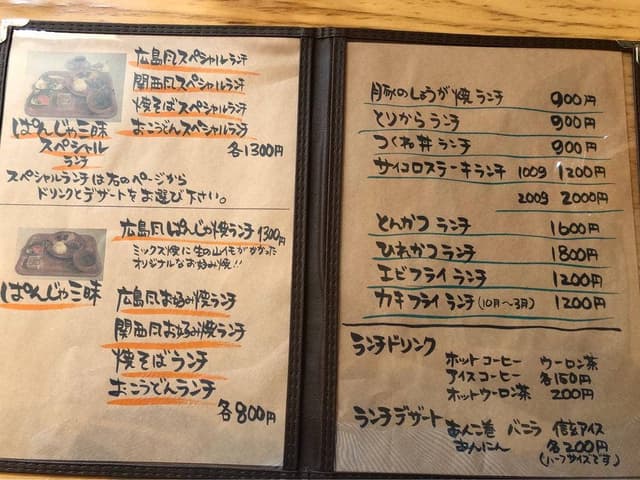 広島風スペシャルランチ
関西風スペシャルランチ
焼そばスペシャルランチ
おこうどんスペシャルランチ
各1300円
ぱんじゃ三昧
スペシャル
ランチ
スペシャルランチは右のページから
ドリンクとデザートをお選び下さい。
広島風ぱんじゃ焼ランチ 1300円
ミックス焼に生の山イモがかかった
オリジナルなお好み焼!!
ぱんじゃ三昧
広島風お好み焼ランチ
関西風お好み焼ランチ
焼そばランチ
おこうどんランチ
各800円
豚のしょうが焼ランチ 900円
とりからランチ 900円
つくね丼ランチ 900円
サイコロステーキランチ 100g 1200円
200g 2000円
とんかつランチ 1600円
ひれかつランチ 1800円
エビフライランチ 1200円
カキフライランチ(10月〜3月) 1200円
ランチドリンク
ホットコーヒー ウーロン茶
アイスコーヒー 各150円
ホットウーロン茶 200円
ランチデザート あんこ巻 バニラ 信玄アイス
あんにん 各200円
(ハーフサイズです)